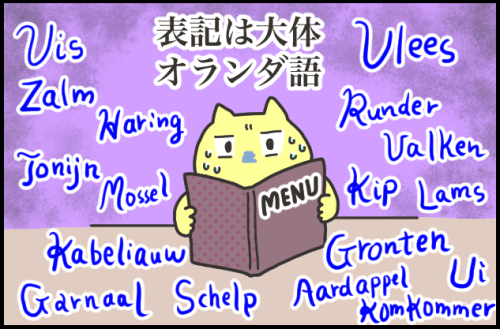 表記は大体
オランダ語
Vis
Zalm
Haring
Tonijn
Mossel
Kabeliauw
Garnaal
Schelp
Vlees
Runder
Valken
Kip
Lams
Gronten
Aardappel
Ui
Komkommer
MENU